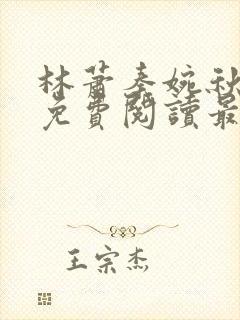 林蕭秦婉秋
免費閱讀最
王宗杰